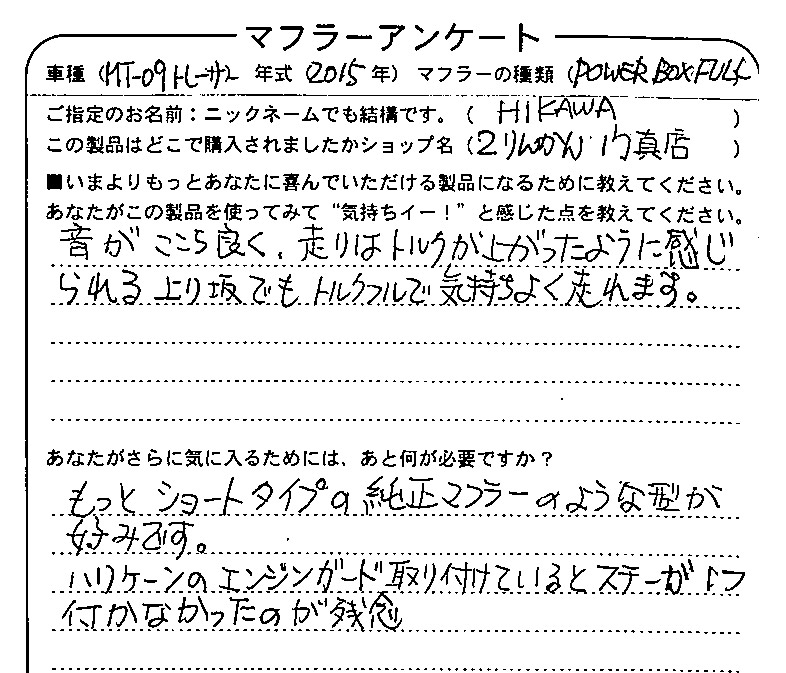 マフラーアンケート
車種 (MT-09トレーサー 年式 (2015年) マフラーの種類 (POWER BOX FULL)
ご指定のお名前：ニックネームでも結構です。( HIKAWA )
この製品はどこで購入されましたかショップ名 (2りんかん 門真店 )
■いまよりもっとあなたに喜んでいただける製品になるために教えてください。
あなたがこの製品を使ってみて“気持ちイー！”と感じた点を教えてください。
音が ここち良く、走りはトルクが上がったように感じ
られる 上り坂でも トルクフルで気持ちよく走れます。
あなたがさらに気に入るためには、あと何が必要ですか？
もっと ショートタイプの 純正マフラーのような型が
好みです。
ハリケーンのエンジンガード取り付けているとステーが1つ
付かなかったのが残念